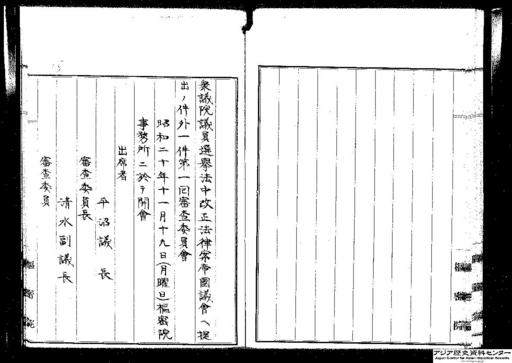 衆議院議員選擧法中改正法律案帝國議會ヘ提
出ノ件外一件第一回審査委員會
昭和二十年十一月十九日(月曜日)樞密院
事務所ニ於テ開會
出席者
平沼議長
審査委員長
清水副議長
審査委員
アジア歴史資料センター
Japan Center for Asian Historical Records